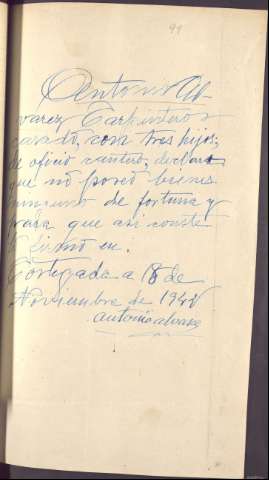 91
Antonio Al
varez, Carbintero y
casado, con tres hijos,
de oficio cantero, declara
que no poseo bienes
ninguno de fortuna y
para que asi conste
lo firmo en
Cortegada a 18 de
Noviembre de
antonio alvarez